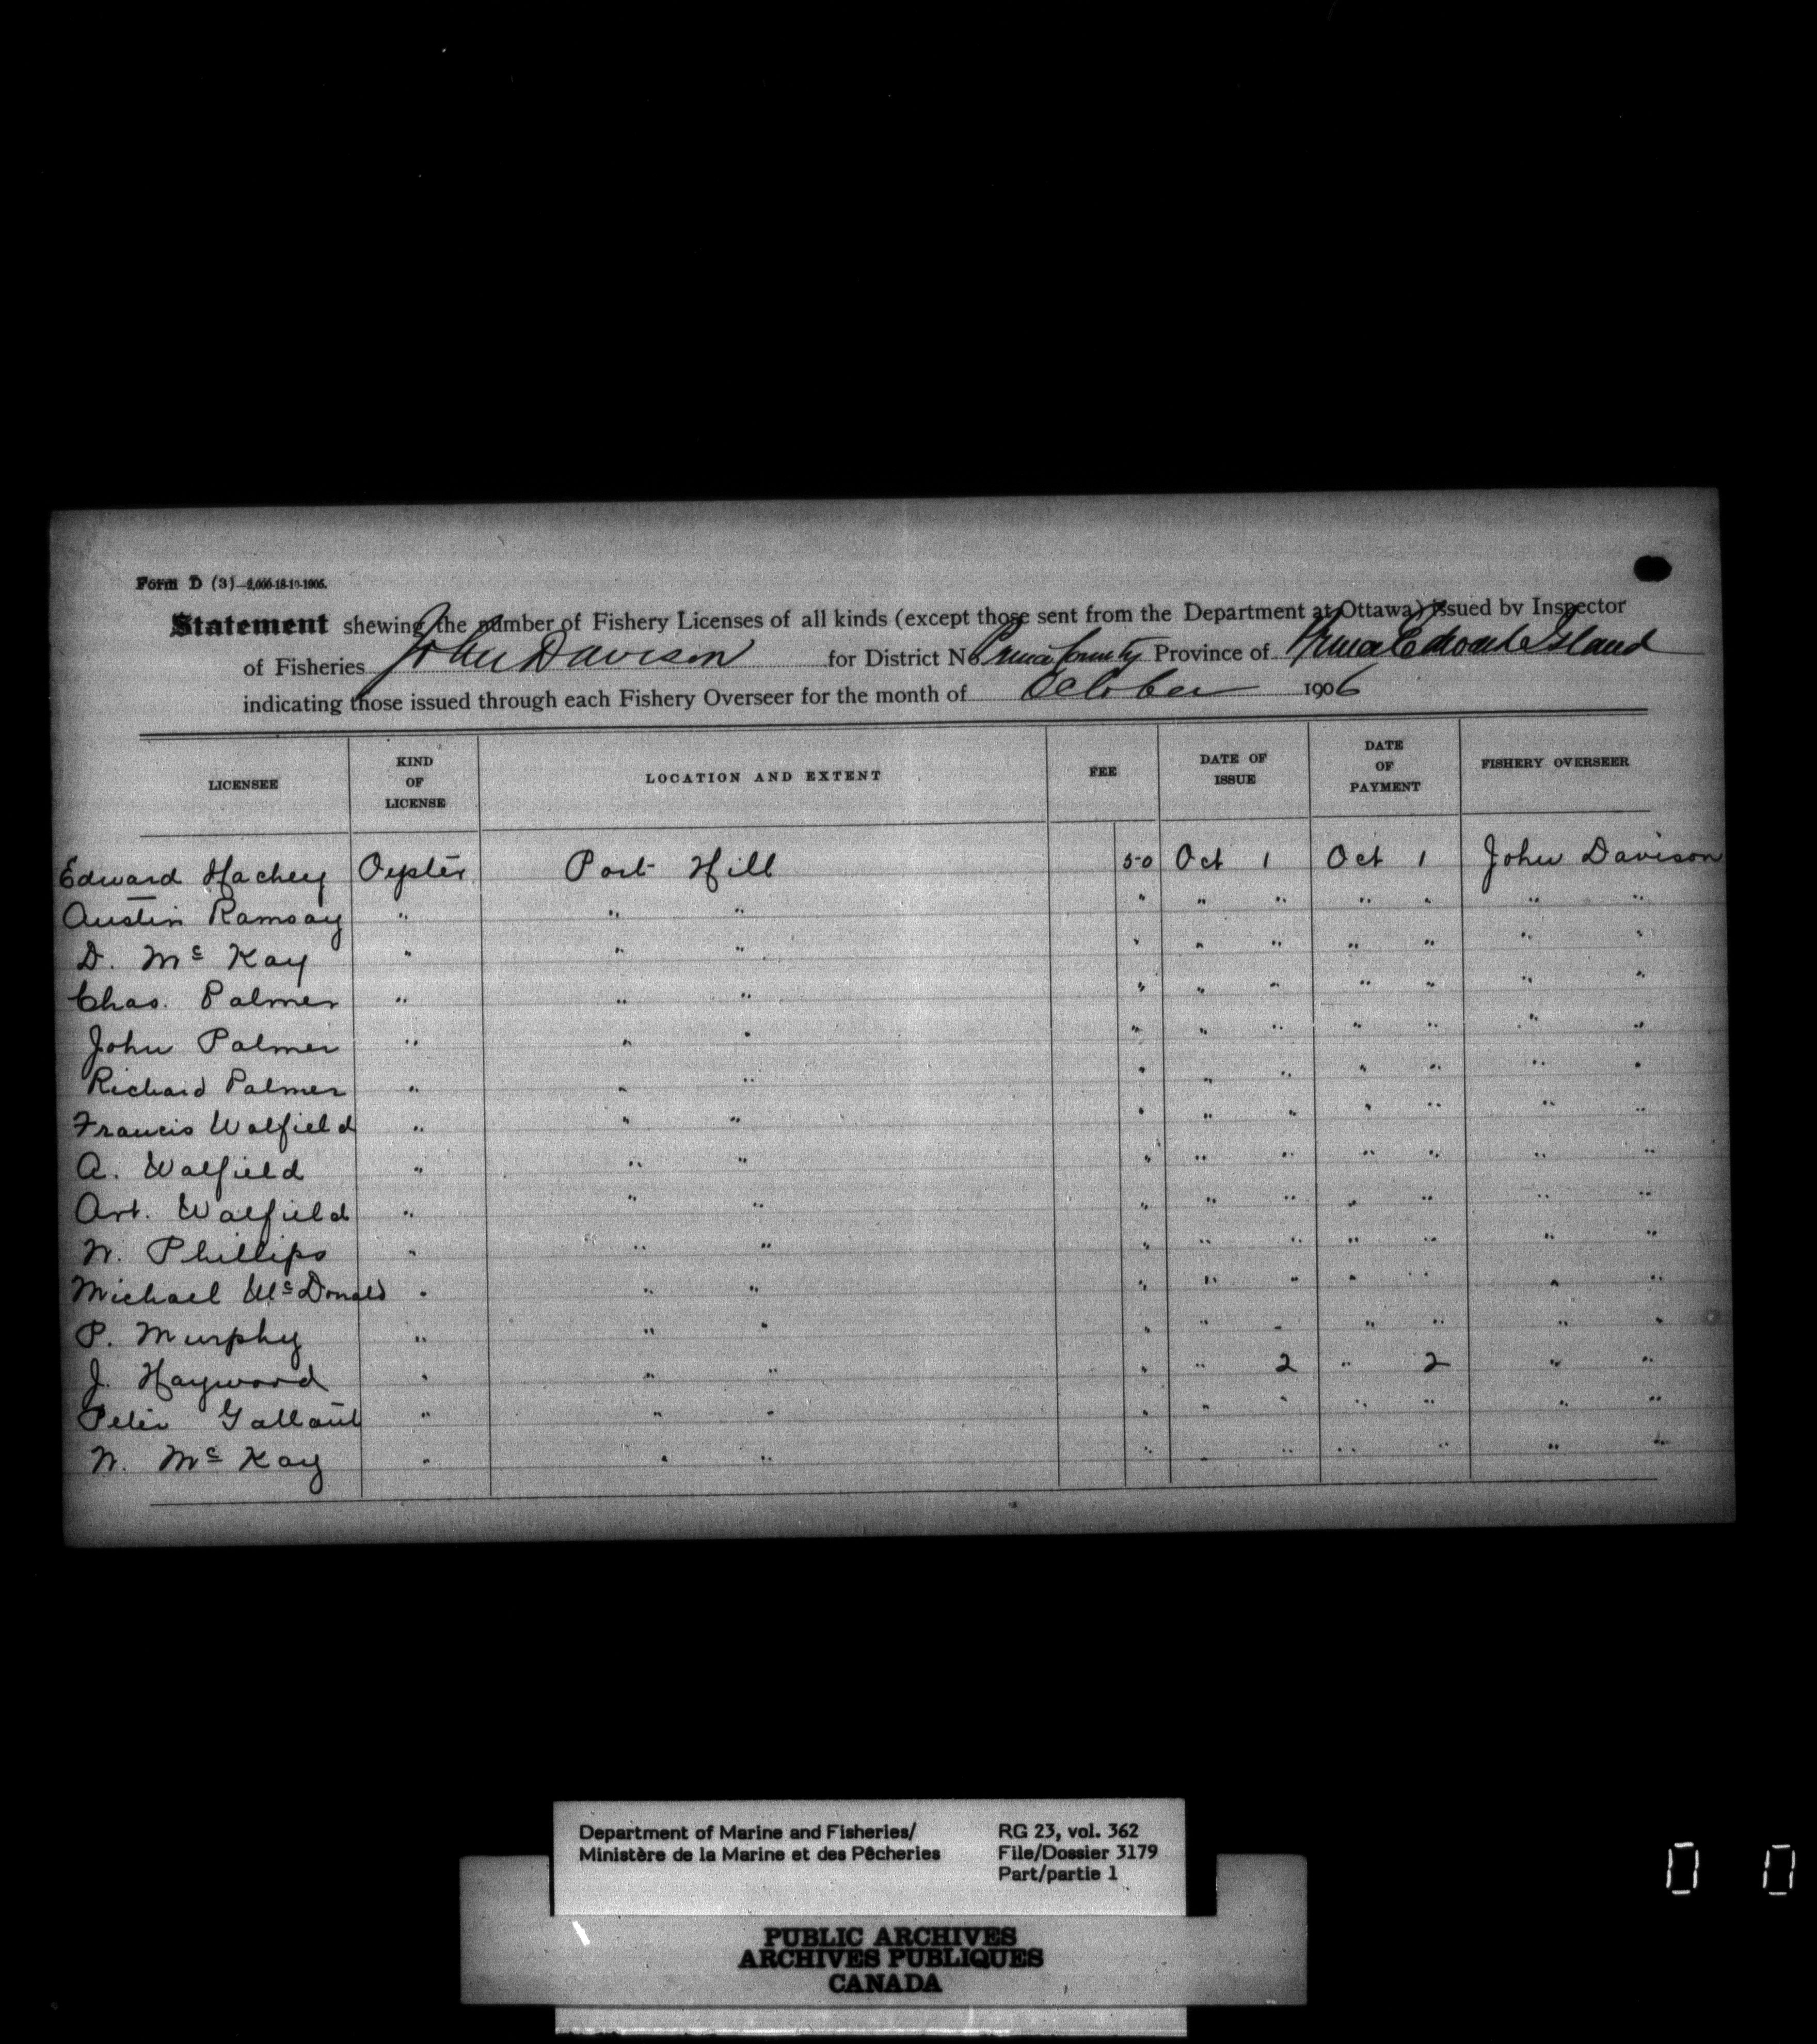 Form D (3)—2,000-18-10-1905.
Statement shewing the number of Fishery Licenses of all kinds (except those sent from the Department at Ottawa) issued by Inspector
of Fisheries John Davison for District No Prince County Province of Prince Edward Island
indicating those issued through each Fishery Overseer for the month of October 1906
LICENSEE KIND OF LICENSE LOCATION AND EXTENT FEE DATE OF ISSUE DATE OF PAYMENT FISHERY OVERSEER
Edward Hachey Oyster Port Hill 50 Oct 1 Oct 1 John Davison
Austin Ramsay " " " " " " " " " "
D. Mc Kay " " " " " " " " " "
Chas. Palmer " " " " " " " " " "
John Palmer " " " " " " " " " "
Richard Palmer " " " " " " " " " "
Francis Walfield " " " " " " " " " "
A. Walfield " " " " " " " " " "
Art. Walfield " " " " " " " " " "
W. Phillips " " " " " " " " " "
Michael McDonald " " " " " " " " " "
P. Murphy " " " " " " " " " "
J. Haywood " " " " " 2 " 2 " "
Peter Gallant " " " " " " " " " "
W. Mc Kay " " " " " " " " " "
Department of Marine and Fisheries/ RG 23, vol. 362
Ministère de la Marine et des Pêcheries File/Dossier 3179
Part/partie 1
PUBLIC ARCHIVES
ARCHIVES PUBLIQUES
CANADA
0 0